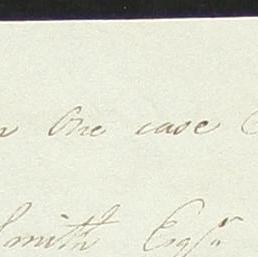 One case
Smith Esqr